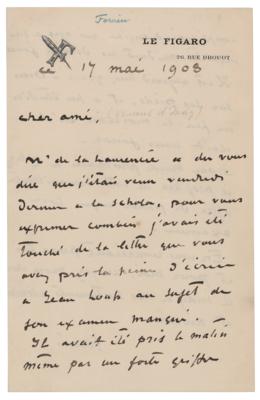 Forain
LE FIGARO
26, RUE DROUOT
17 mai 1903
cher ami,
Mr de la Laurencie a du vous
dire que j'étais venu vendredi
dernier a la schola, pour vous
exprimer combien j'avais été
touché de la lettre que vous
avez pris la peine d'écrire
a Jean Loup au sujet de
son examen manqué.
Il avait été pris le matin
même par un forte grippe